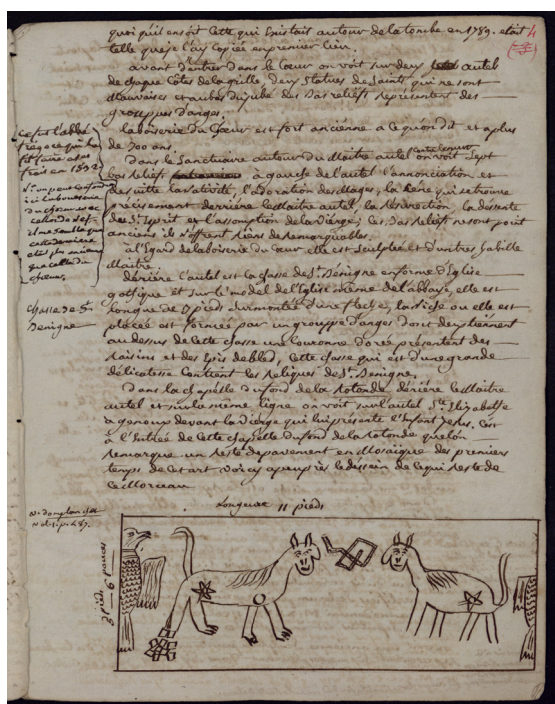 quoi qu'il en soit Cette qui Existait autour de la tombe en 1789. etait
telle que je l'ay Copiée en premier lieu.
avant D'entrer Dans le Cœur on voit sur deux autel
de chaque Côtes de la grille, deux statues de Saints qui ne sont
mauvaises et aubas du jubé des Bas reliefs représentent des
grouppes d'anges.
la boiserie du Cœur est fort ancienne a ce qu'on dit et a plus
de 200 ans.
Dans le Sanctuaire autour du Maitre autel on voit Sept
bas reliefs a gauche de l'autel l'annonciation et
de suitte la nativité, l'adoration des Mages, la Cene qui se trouve
précisement derriere le Maitre autel, la résurection, la desente
du St. Esprit et l'assomption de la Vierge; Ces Bas reliefs ne sont point
anciens ils n'offrent riens de remarquables.
à l'Egard de la boiserie du Cœur elle est Sculptée et d'un tres habille
Maitre.
dériére l'autel est la chasse de St. Benigne en forme d'Eglise
gothique et sur le model de l'Eglise même de l'abbaye, elle est
longue de 7 pieds surmontée d'une fleche, la niche ou elle est
placée est formée par un grouppe d'anges dont deux tiennent
au dessus de cette chasse une Couronne dorée présentent des
raisins et des Epis de bled, Cette chasse qui est d'une grande
délicatesse Contient les reliques de St. Benigne.
Dans la chapelle du fond de la rotonde dériére le Maitre
autel et sur la même ligne on voit sur l'autel Ste. Elizabethe
a genoux devant la Vierge qui lui présente l'Enfant Jesus. C'est
à l'Entrée de Cette chapelle du fond de la rotonde que lon
remarque un reste de pavement en Mosaique des premiers
temps de Cet art voicy a peu près le dessein de ce qui reste de
ce Morceau
4
c'est l'abbé
qui l'a
fait faire a ses
frais en 1832
chasse de St.
Benigne
Longeur 11 pieds
3 pieds 6 pouces